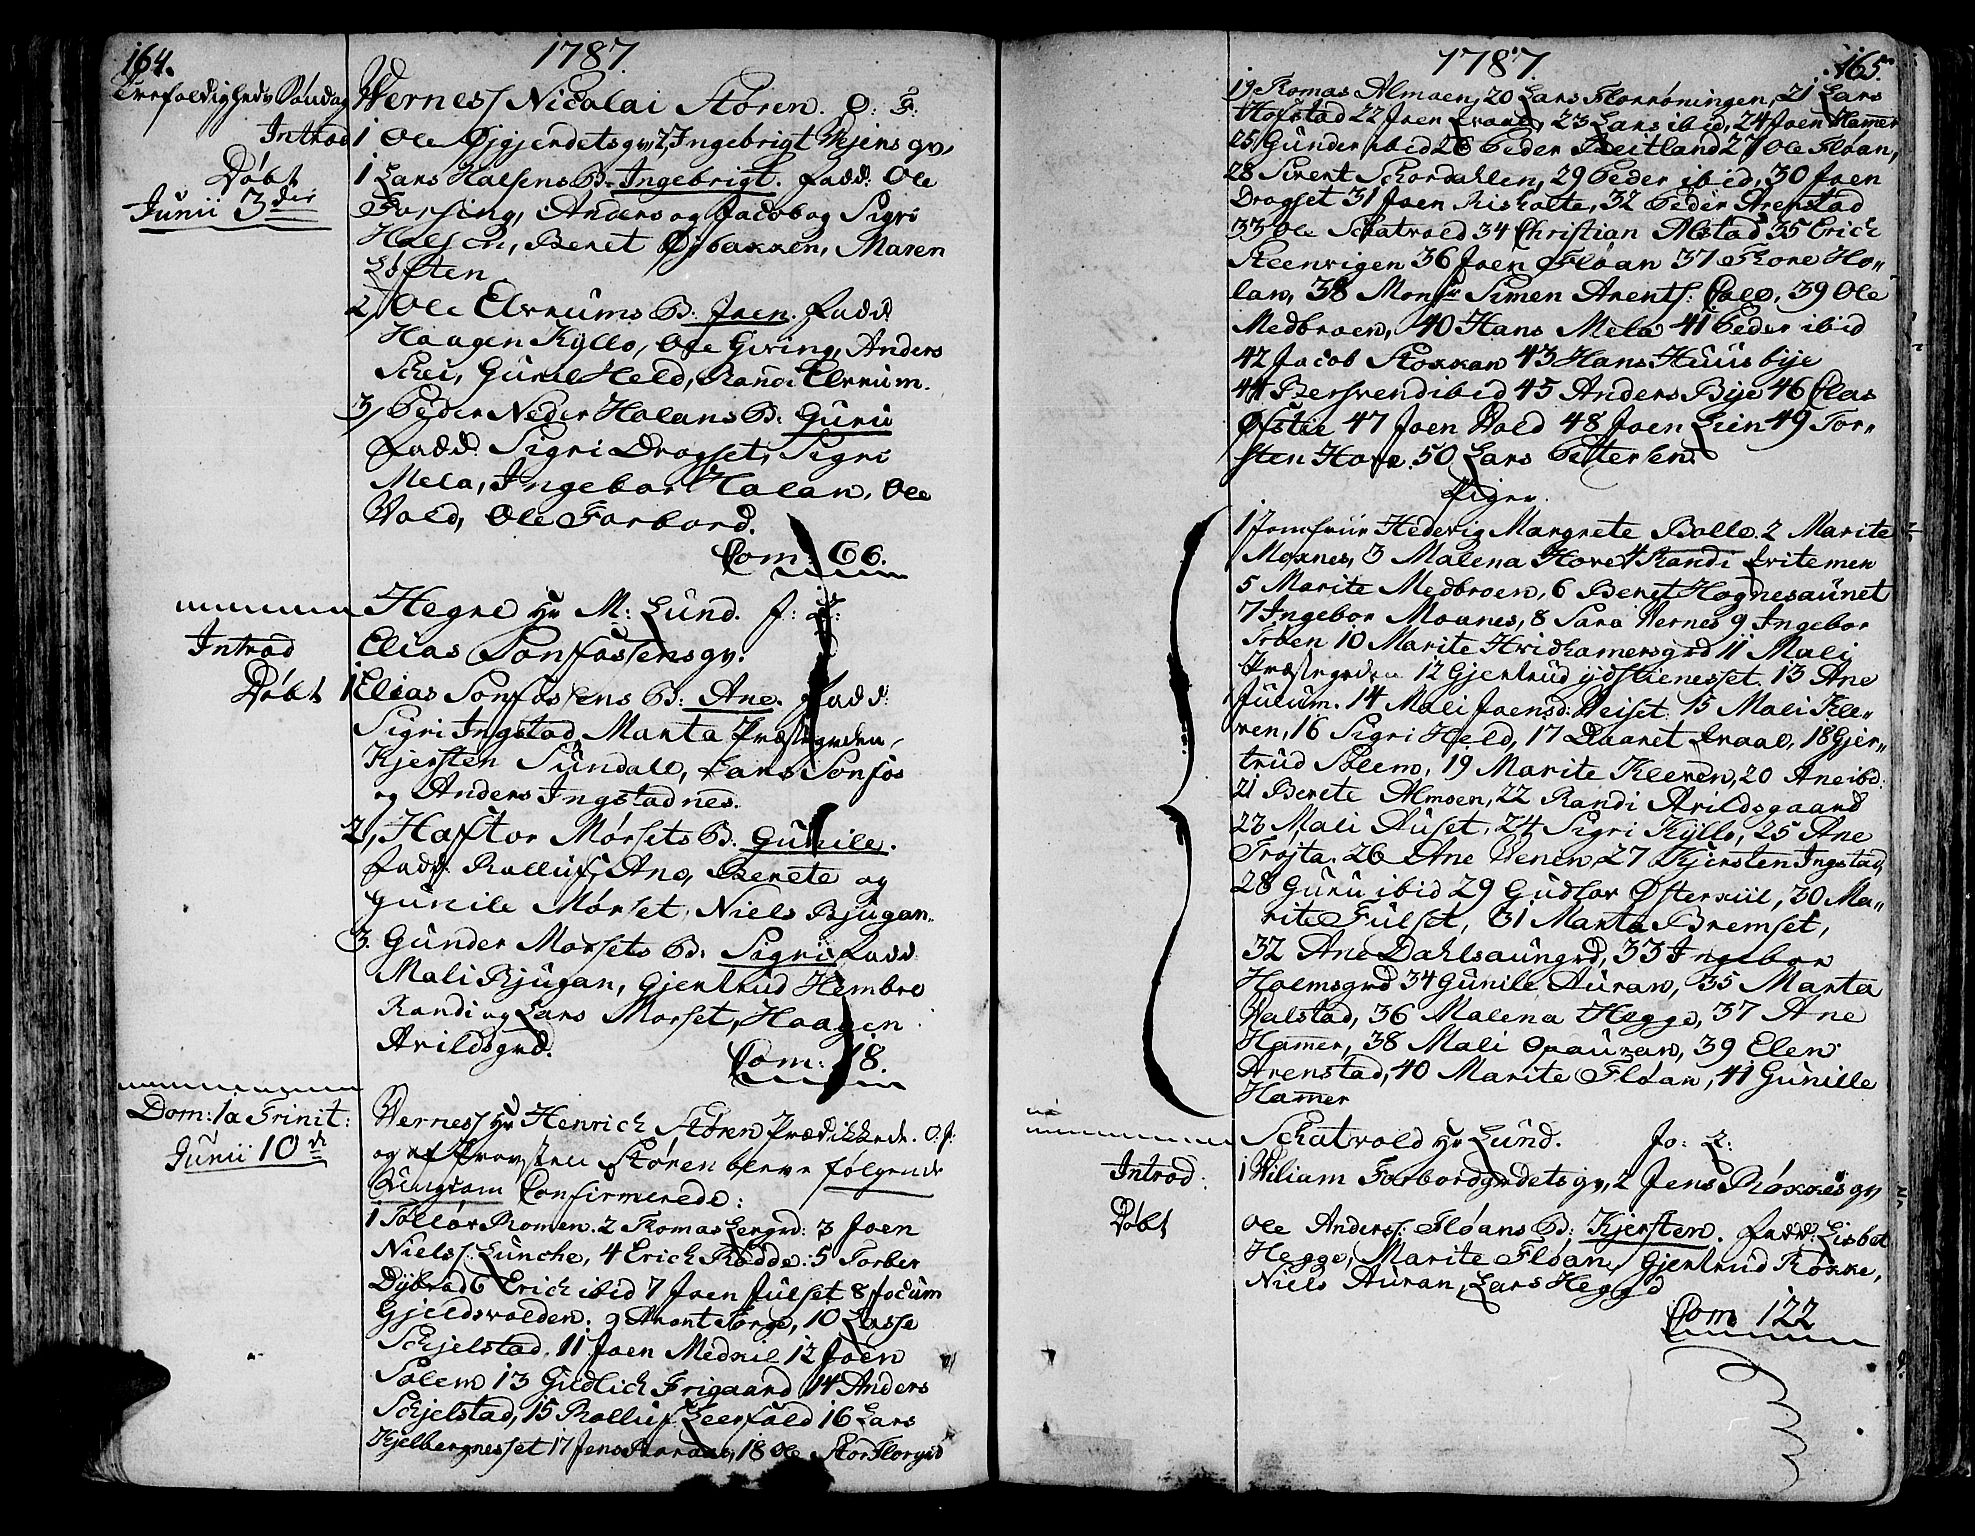 164.
1787.
Trefoldigheds Søndag
Wernes, Nicolai Støren. O: F:
Introd
1 Ole Øjgjerdets gv, 2, Ingebrigt Mejens gv,
Døbt
Junii 3die
1 Lars Halsens B: Ingebrigt. Fadd: Ole
Forsing, Anders og Jacob og Sigri
Halsen, Beret Øjbakken, Maren
Løften
2, Ole Elvrums B: Joen. Fadd:
Haagen Kyllo, Ole Gving, Anders
Schei, Guril Held, Randi Elvrum.
3, Peder Neder Holans B: Guru
Fadd. Sigri Dragset, Sigri
Mela, Ingebor Holan, Ole
Vold, Ole Forbord.
Com: 66.
Hegre Hr M: Lund. f: L:
Introd
Elias Sonfossens gv.
Døbt
1 Elias Sonfossens B: Ane. Fadd:
Sigri Ingstad, Marta Præstegrden,
Kjersten Sundall, Lars Sonfos
og Anders Ingstadnes.
2, Haftor Mørsets B. Gunile.
Fadd. Rolluf, Ane, Berete og
Gunile Mørset, Niels Bjugan.
3. Gunder Morsets B: Sigri Fadd:
Mali Bjugan, Gjertrud Hembre
Randi og Lars Morset, Haagen
Arildsgrd.
Com: 18.
Dom: 1a Trinit:
Junii 10de
Værnes, Hr Henrich Støren Prædikkede. O: f:
og af Provsten Støren bleve følgende
Ungdom Confirmerede:
1 Tolløv Romen. 2 Tomas Lergrd: 3 Joen
Niels: Lunche, 4 Erich Rodde: 5 Torber
Dybvad 6 Erich ibid 7 Joen Julset 8 Jocum
Gjeldsvolden: 9 Arent Torge, 10 Lasse
Schjelstad. 11 Joen Mednil 12 Joen
Solem 13 Gudlich Frigaard 14 Anders
Schjelstad, 15 Rolluf Leerfald 16 Lars
Kjelbergnesset 17 Jens, 18 Ole StorFlorgrd
1787.
165.
19 Tomas Almoen, 20 Lars Flornøningen, 21 Lars
Hofstad 22 Joen Evand, 23 Lars ibid, 24 Joen Hamer
25 Gunder ibid 26 Peder Treitland 27 Ole Floan,
28 Sivert Schordallen, 29 Peder ibid, 30 Joen
Dragset 31 Joen Risholte, 32 Peder Arenstad
33 Ole Schatvold 34 Christian Alstad 35 Erich
Steenvigen 36 Joen Floan 37 Tore Ho„
lan, 38 Monsr Simen Arents: Cold, 39 Ole
Medbroen, 40 Hans Mela 41 Peder ibid
42 Jacob Stokkan 43 Hans Huusbye
44 Bersvend ibid 45 Anders Bye 46 Clas
Øfstie 47 Joen Vold 48 Joen Lien 49 Tor„
sten Hove. 50 Lars Petersen.
Piger.
1 Jomfrur Hedevig Margrete Bolle. 2 Marite
Moxnes, 3 Malena Hove 4 Randi Evitemen
5 Marite Medbroen, 6 Beret Hognesaunet
7 Ingebor Moxnes, 8 Sara Vernes 9 Ingebor
Troen 10 Marite Hvidhamersgrd 11 Mali
Præstegrden 12 Gjertrud ydstienesset. 13 Ane
Julum. 14 Mali Joensd: Veiset. 15 Mali Kle„
ven, 16 Sigri Held, 17 Daaret Evaas, 18 Gjer„
trud Solem, 19 Marite Kleven, 20 Ane ibd:
21 Berete Almoen, 22 Randi Arildsgaard
23 Mali Auset, 24 Sigri Kyllo, 25 Ane
Trøjta. 26 Ane Venen 27 Kjersten Ingstad,
28 Guru ibid 29 Gudlov Østerkiil, 30 Ma„
rite Fulset, 31 Marta Bremset,
32 Ane Dahlsaungrd, 33 Ingebor
Holmsgrd 34 Gunile Auran, 35 Marta
Valstad, 36 Malena Hegge, 37 Ane
Hamer, 38 Mali Opauran, 39 Elen
Arenstad, 40 Marite Floan, 41 Gunille
Hamer
Schatvold Hr Lund. Jo: L:
Introd:
1 Wiliam Forbordgrdets gv, 2 Jens Røkkes gv
Døbt
Ole Anders: Fløans B: Kjersten. Fadd: Lisbet
Hegge, Marite Floan, Gjertrud Røkke,
Niels Auran, Lars Heggd
Com 122